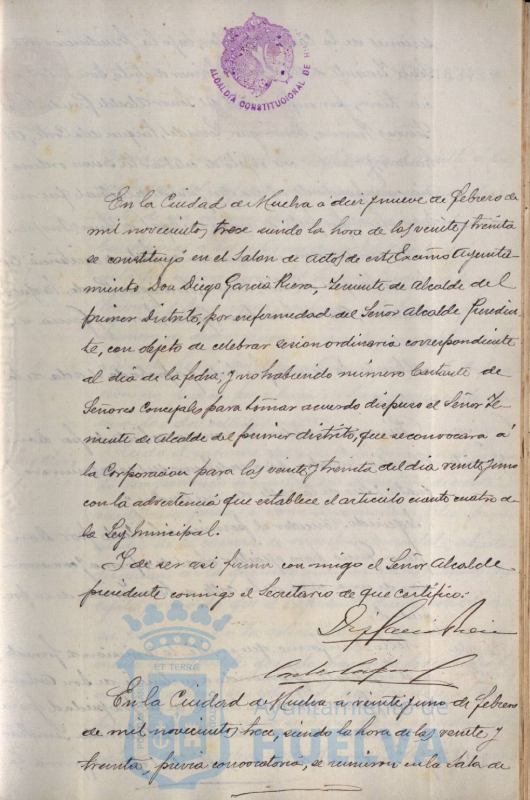 ALCALDÍA CONSTITUCIONAL DE H
En la Ciudad de Huelva á diez y nueve de Febrero de
mil novecientos trece siendo la hora de las veinte y treinta
se constituyó en el Salon de Actos de este Excmo Ayunta-
miento Don Diego García Riera, Teniente de Alcalde del
primer Distrito, por enfermedad del Señor Alcalde Presiden-
te, con objeto de celebrar sesion ordinaria correspondiente
al dia de la fecha; y no habiendo número bastante de
Señores Concejales para tomar acuerdo dispuso el Señor Te-
niente de Alcalde del primer distrito, que se convocara á
la Corporacion para las veinte y treinta del dia veinte y uno
con la advertencia que establece el articulo ciento cuatro de
la Ley Municipal.
Y de ser así firma con migo el Señor Alcalde
presidente conmigo el Secretario de que certifico:
ET TERRÆ
Ayuntamiento de
HUELVA
En la Ciudad de Huelva á veinte y uno de Febrero
de mil novecientos trece, siendo la hora de las veinte y
treinta, previa convocatoria, se reunieron en la Sala de